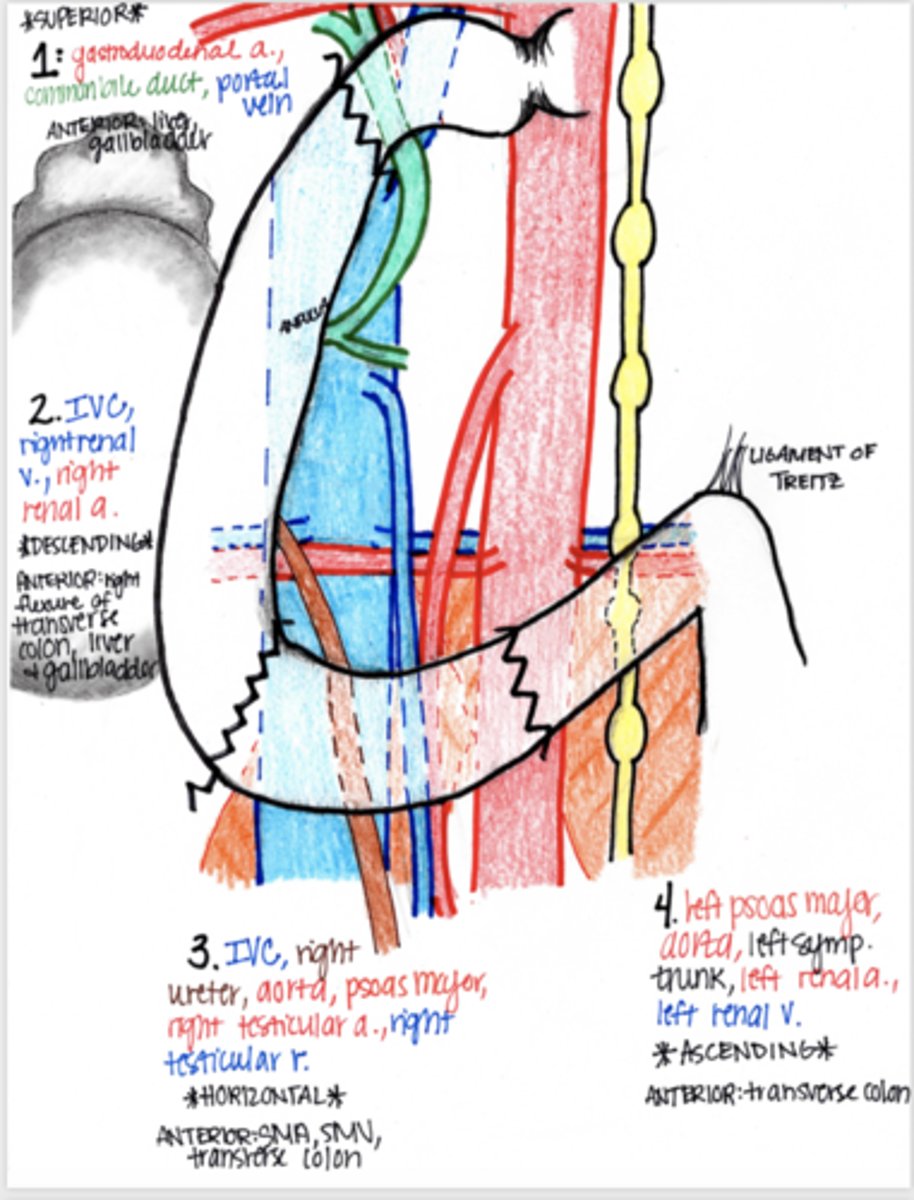 *SUPERIOR*
1: gastroduodenal a.,
common bile duct, portal
vein
ANTERIOR: liver,
gallbladder
AMPULLA
2. IVC,
right renal
v., right
renal a.
*DESCENDING*
ANTERIOR: right
flexure of
transverse
colon, liver
+ gallbladder
LIGAMENT OF
TREITZ
3. IVC, right
ureter, aorta, psoas major,
right testicular a., right
testicular v.
*HORIZONTAL*
ANTERIOR: SMA, SMV,
transverse colon
4. left psoas major,
aorta, left symp.
trunk, left renal a.,
left renal v.
*ASCENDING*
ANTERIOR: transverse colon